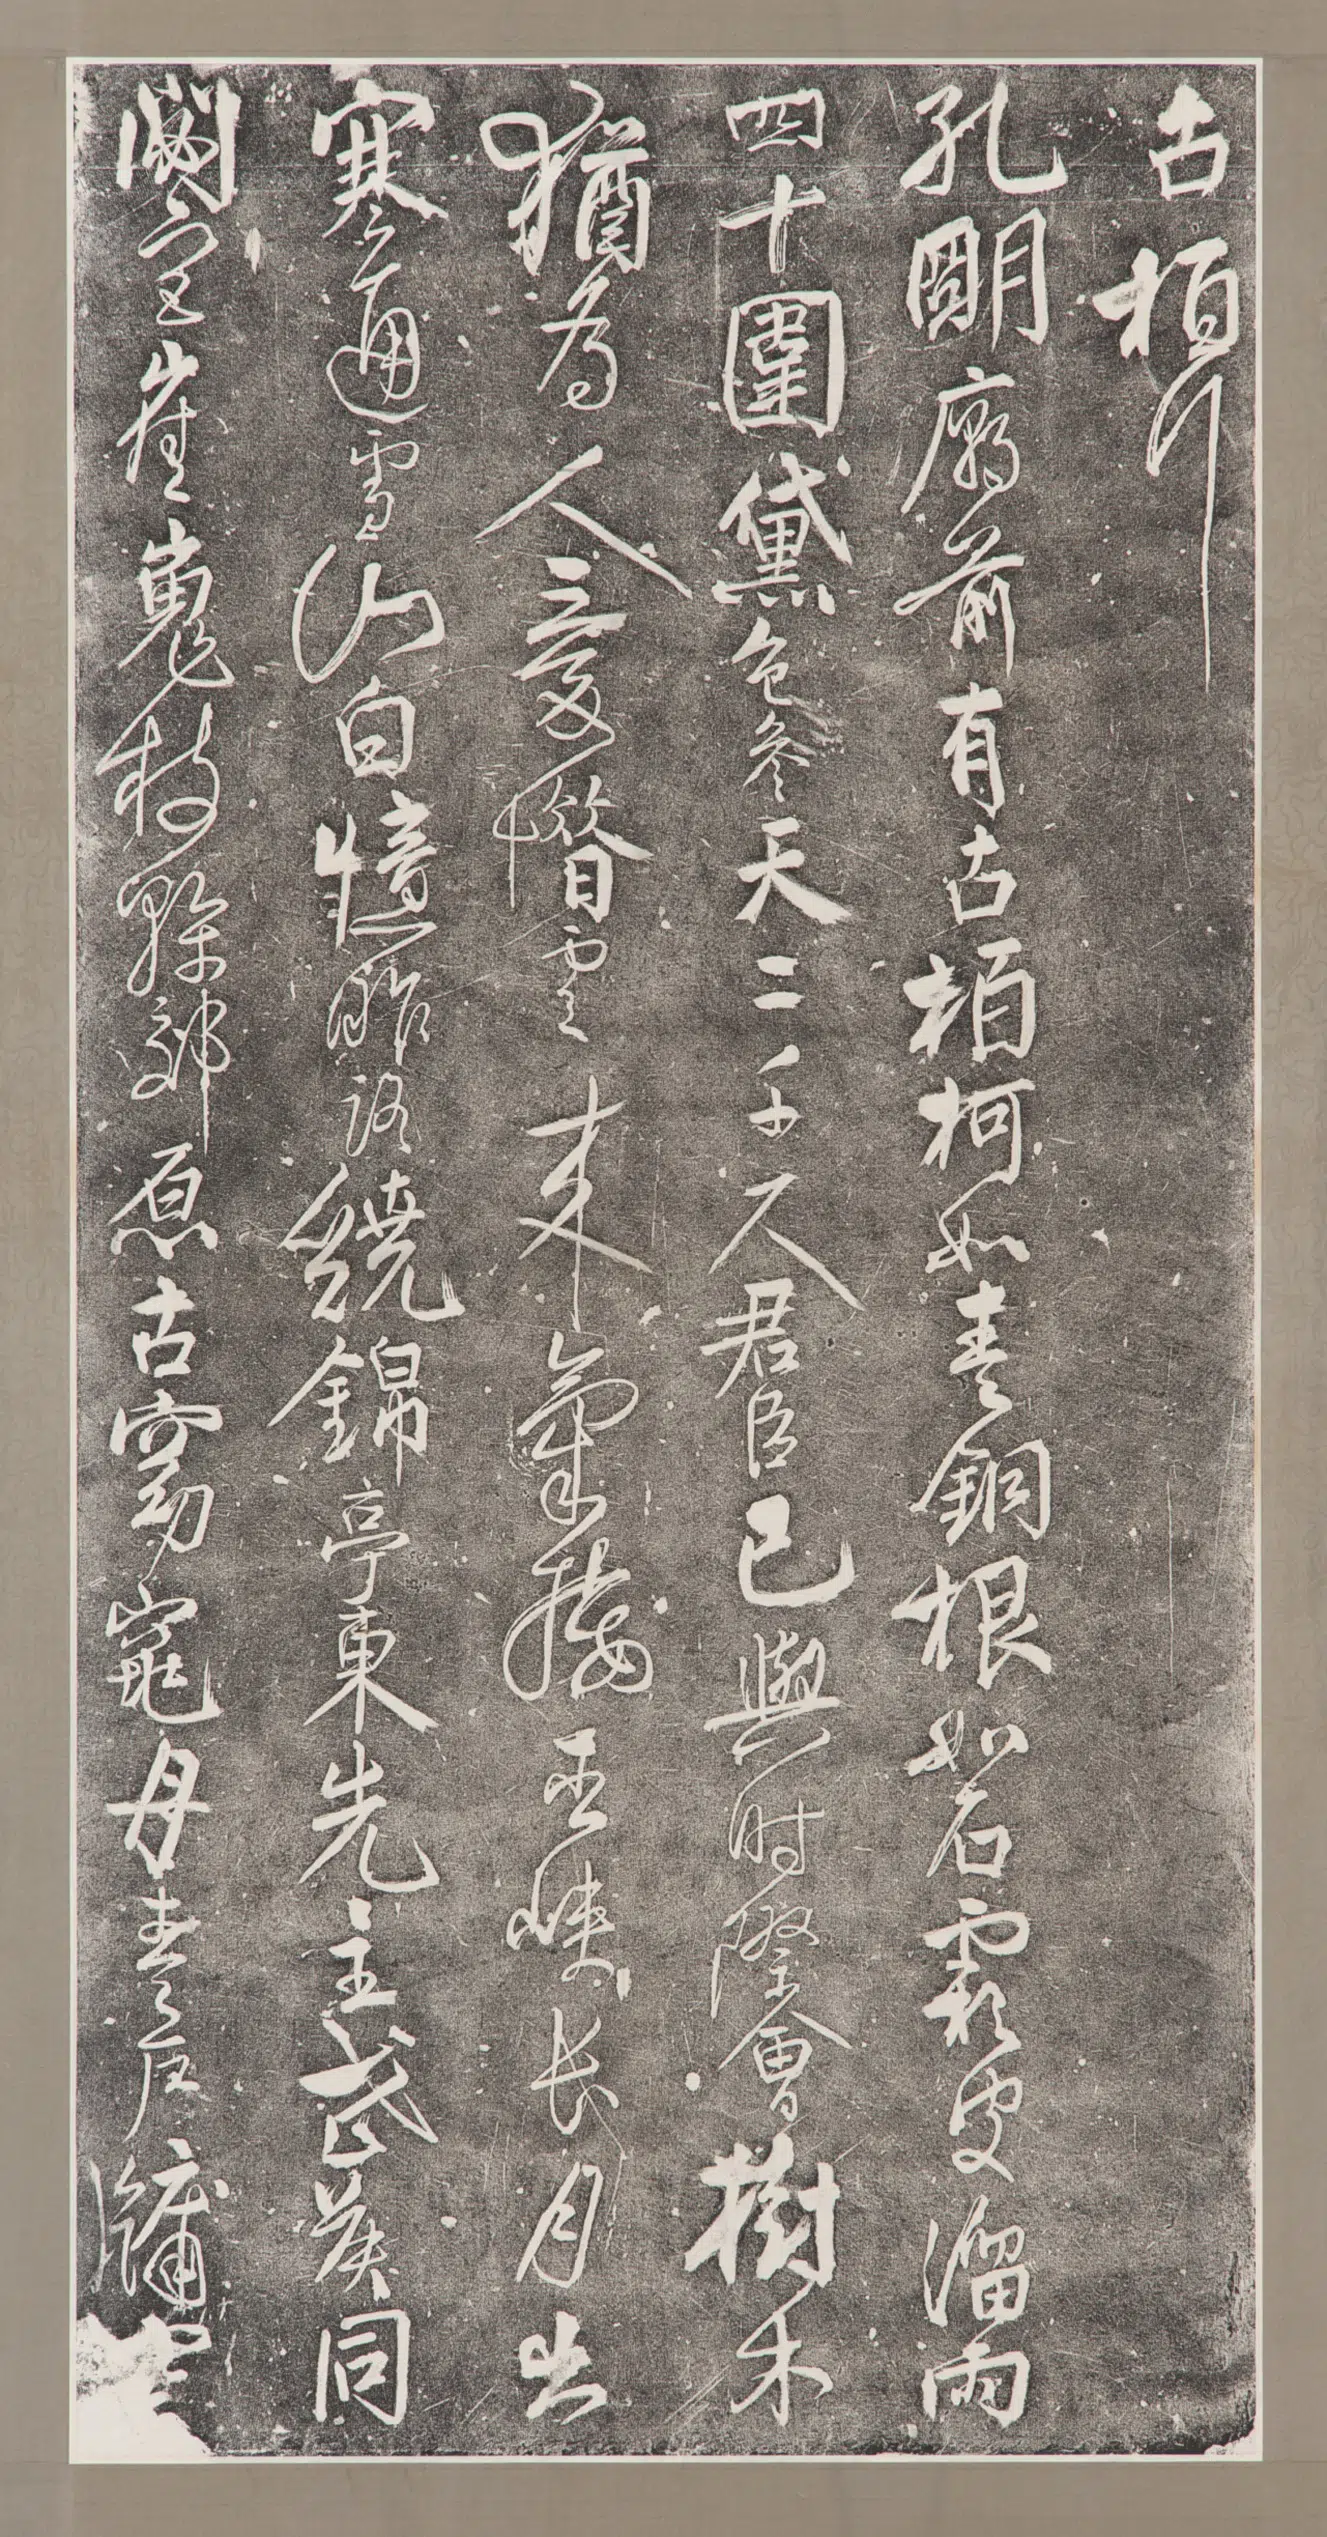 古栢行
孔明廟前有古栢柯如青銅根如石霜皮溜雨
四十圍黛色參天二千尺君臣已與時際會樹木
猶為人愛惜雲來氣接巫峽長月出
寒通雪山白憶昨路繞錦亭東先主武侯同
閟宮崔嵬枝幹郊原古窈窕丹青戶牖